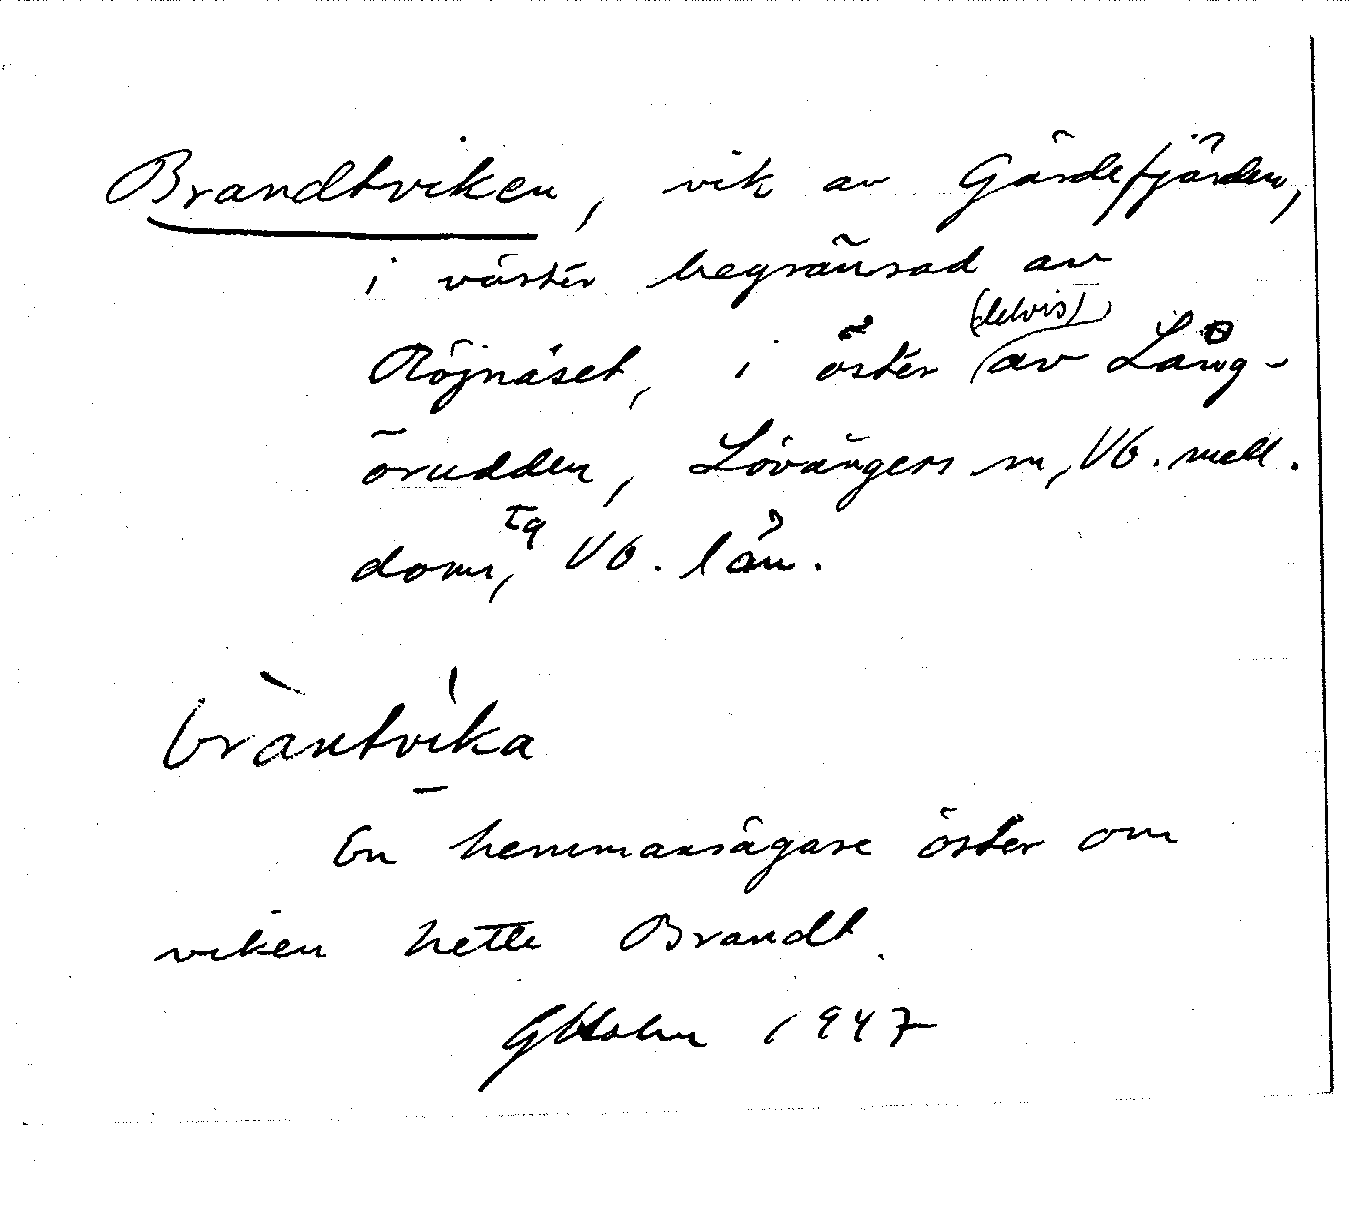 Brandtviken, vik av Gärdefjärden,
i väster begränsad av
Röjnäset, i öster (delvis) av Lång-
örudden, Lövångers sn, Vb. mell.
doms tg, Vb. län.
bràntvíka
En hemmansägare öster om
viken hette Brandt.
GHolm 1947